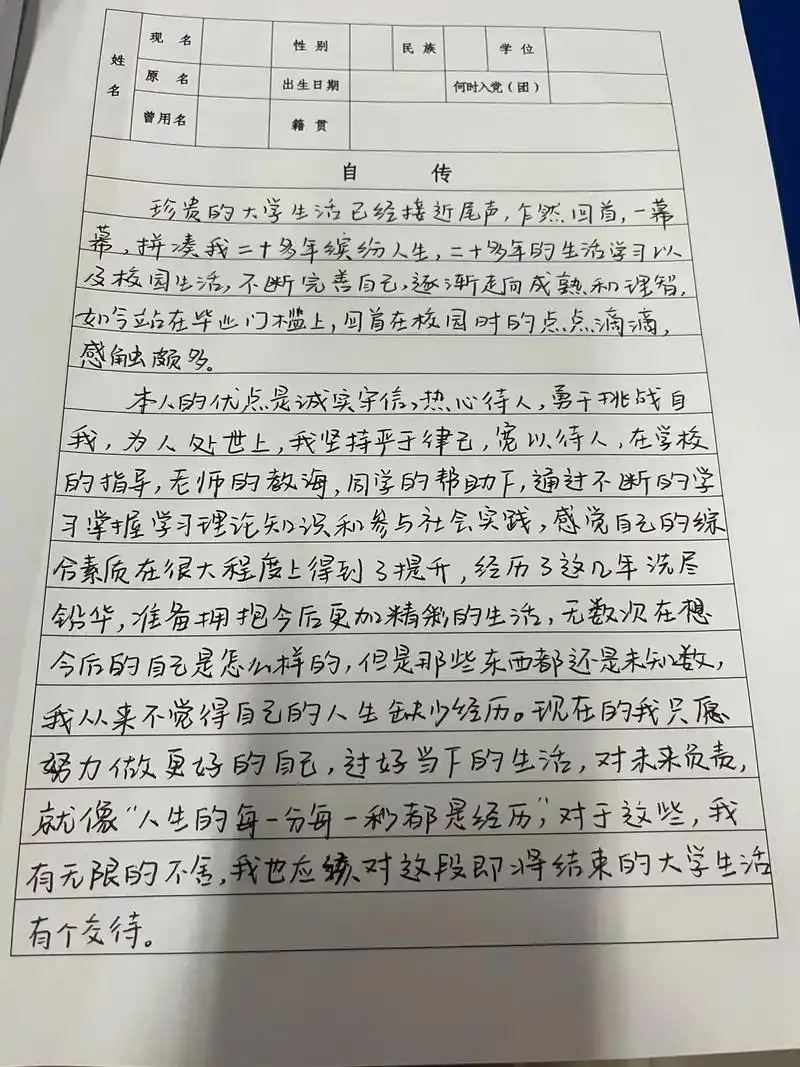 姓名 现名 性别 民族 学位
原名 出生日期 何时入党(团)
曾用名 籍贯
自 传
珍贵的大学生活已经接近尾声,乍然回首,一幕
幕,拼凑我二十多年缤纷人生,二十多年的生活学习以
及校园生活,不断完善自己,逐渐走向成熟和理智,
如今站在毕业门槛上,回首在校园时的点点滴滴,
感触颇多。
本人的优点是诚实守信,热心待人,勇于挑战自
我,为人处世上,我坚持严于律己,宽以待人,在学校
的指导,老师的教海,同学的帮助下,通过不断的学
习掌握学习理论知识和参与社会实践,感觉自己的综
合素质在很大程度上得到了提升,经历了这几年洗尽
铅华,准备拥抱今后更加精彩的生活,无数次在想
今后的自己是怎么样的,但是那些东西都还是未知数,
我从来不觉得自己的人生缺少经历。现在的我只愿
努力做更好的自己,过好当下的生活,对未来负责,
就像“人生的每一分每一秒都是经历”,对于这些,我
有无限的不舍,我也应该对这段即将结束的大学生活
有个交待。